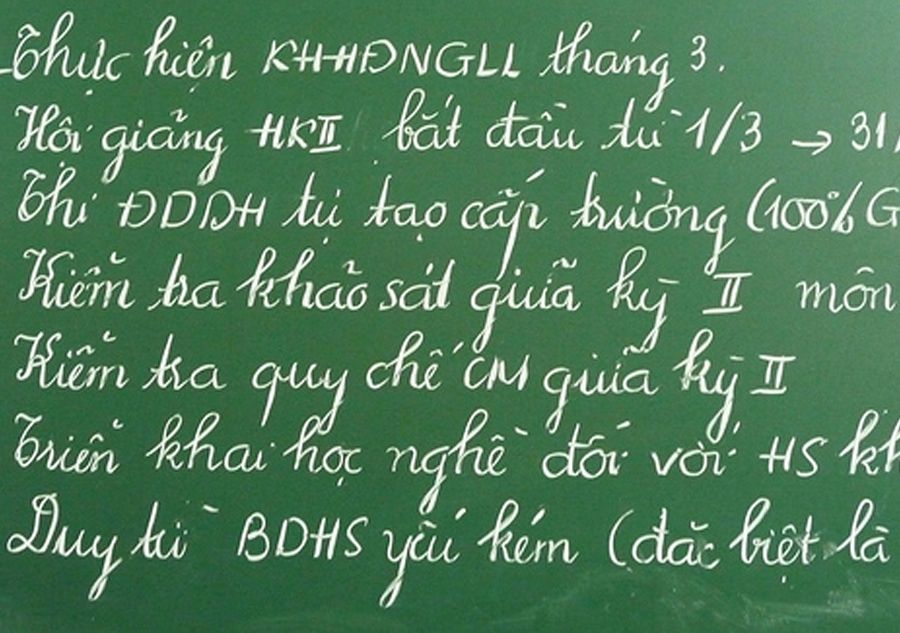 Thực hiện KHHĐNGLL tháng 3.
Hội giảng HKII bắt đầu từ 1/3 → 31/
Thi ĐDDH tự tạo cấp trường (100% G
Kiểm tra khảo sát giữa kỳ II môn
Kiểm tra quy chế CM giữa kỳ II
Triển khai học nghề đối với HS kh
Duy trì BDHS yếu kém (đặc biệt là